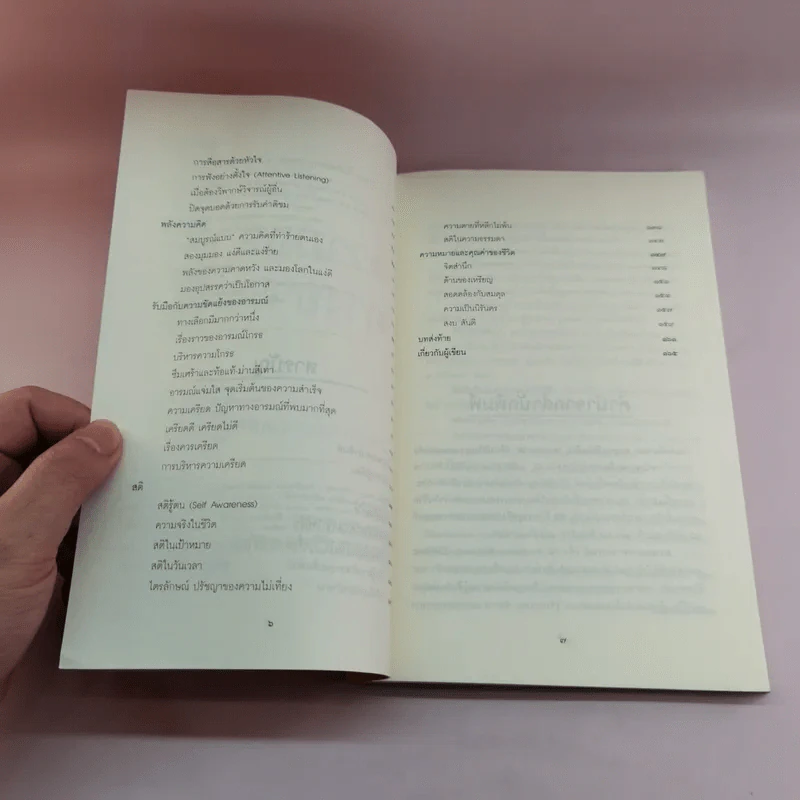 การสื่อสารด้วยหัวใจ
การฟังอย่างตั้งใจ (Attentive Listening)
เมื่อต้องวิพากษ์วิจารณ์ผู้อื่น
ปิดจุดบอดด้วยการรับคำติชม
พลังความคิด
"สมบูรณ์แบบ" ความคิดที่ทำร้ายตนเอง
สองมุมมอง แง่ดีและแง่ร้าย
พลังของความคาดหวัง และมองโลกในแง่ดี
มองอุปสรรคว่าเป็นโอกาส
รับมือกับความขัดแย้งของอารมณ์
ทางเลือกมีมากกว่าหนึ่ง
เรื่องราวของอารมณ์โกรธ
บริหารความโกรธ
ซึมเศร้าและท้อแท้-ม่านสีเทา
อารมณ์แจ่มใส จุดเริ่มต้นของความสำเร็จ
ความเครียด ปัญหาทางอารมณ์ที่พบมากที่สุด
เครียดดี เครียดไม่ดี
เรื่องควรเครียด
การบริหารความเครียด
สติ
สติรู้ตน (Self Awareness)
ความจริงในชีวิต
สติในเป้าหมาย
สติในวันเวลา
ไตรลักษณ์ ปรัชญาของความไม่เที่ยง
๖
ความตายที่หลีกไม่พ้น
สติในความธรรมดา
ความหมายและคุณค่าของชีวิต
จิตสำนึก
ด้านของเหรียญ
สอดคล้องกับสมดุล
ความเป็นนิรันดร
สงบ สันติ
บทส่งท้าย
เกี่ยวกับผู้เขียน
๗